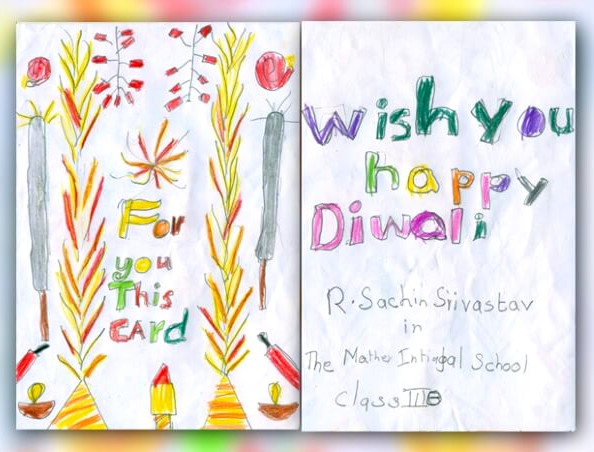 For
you
This
CARD
Wish you
happy
Diwali
R. Sachin Srivastav
in
The Mather Intiagal School
Class III B